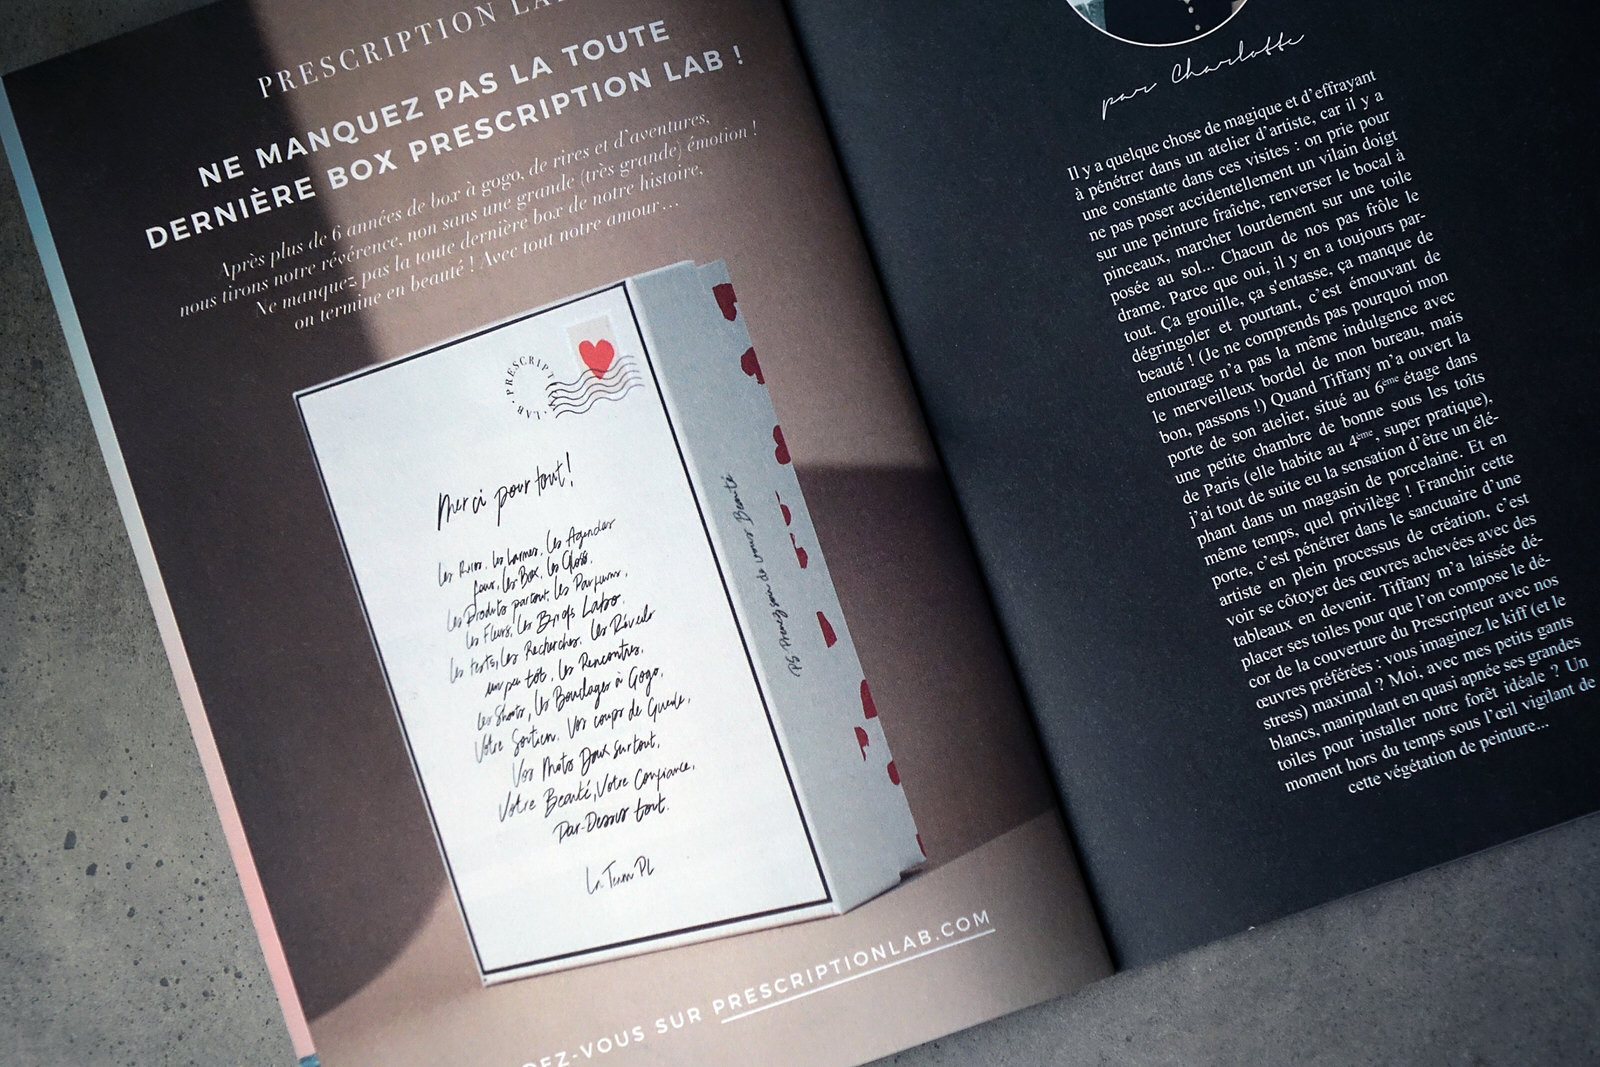 PRESCRIPTION LAB
NE MANQUEZ PAS LA TOUTE
DERNIÈRE BOX PRESCRIPTION LAB !
Après plus de 6 années de box à gogo, de rires et d'aventures,
nous tirons notre révérence, non sans une grande (très grande) émotion !
Ne manquez pas la toute dernière box de notre histoire,
on termine en beauté ! Avec tout notre amour...
PRESCRIPT
LAB
Merci pour tout!
Les Rires, les Larmes, les Agendas
fous, les Box, les Gloss,
les Produits partout, les Parfums,
les Fleurs, les Briefs Labo,
les tests, les Recherches, les Réveils
un peu tôt, les Rencontres,
les Shoots, les Bouclages à Gogo,
Votre Soutien, Vos coups de Gueule,
Vos Mots Doux surtout,
Votre Beauté, Votre Confiance,
Par-Dessus tout.
La Team PL
PS Prenez soin de vous Beauté
DEZ-VOUS SUR PRESCRIPTIONLAB.COM
par Charlotte
Il y a quelque chose de magique et d'effrayant
à pénétrer dans un atelier d'artiste, car il y a
une constante dans ces visites : on prie pour
ne pas poser accidentellement un vilain doigt
sur une peinture fraîche, renverser le bocal à
pinceaux, marcher lourdement sur une toile
posée au sol... Chacun de nos pas frôle le
drame. Parce que oui, il y en a toujours par-
tout. Ça grouille, ça s'entasse, ça manque de
dégringoler et pourtant, c'est émouvant de
beauté ! (Je ne comprends pas pourquoi mon
entourage n'a pas la même indulgence avec
le merveilleux bordel de mon bureau, mais
bon, passons !) Quand Tiffany m'a ouvert la
porte de son atelier, situé au 6ème étage dans
une petite chambre de bonne sous les toîts
de Paris (elle habite au 4ème, super pratique),
j'ai tout de suite eu la sensation d'être un élé-
phant dans un magasin de porcelaine. Et en
même temps, quel privilège ! Franchir cette
porte, c'est pénétrer dans le sanctuaire d'une
artiste en plein processus de création, c'est
voir se côtoyer des œuvres achevées avec des
tableaux en devenir. Tiffany m'a laissée dé-
placer ses toiles pour que l'on compose le dé-
cor de la couverture du Prescripteur avec nos
œuvres préférées : vous imaginez le kiff (et le
stress) maximal ? Moi, avec mes petits gants
blancs, manipulant en quasi apnée ses grandes
toiles pour installer notre forêt idéale ? Un
moment hors du temps sous l'œil vigilant de
cette végétation de peinture...